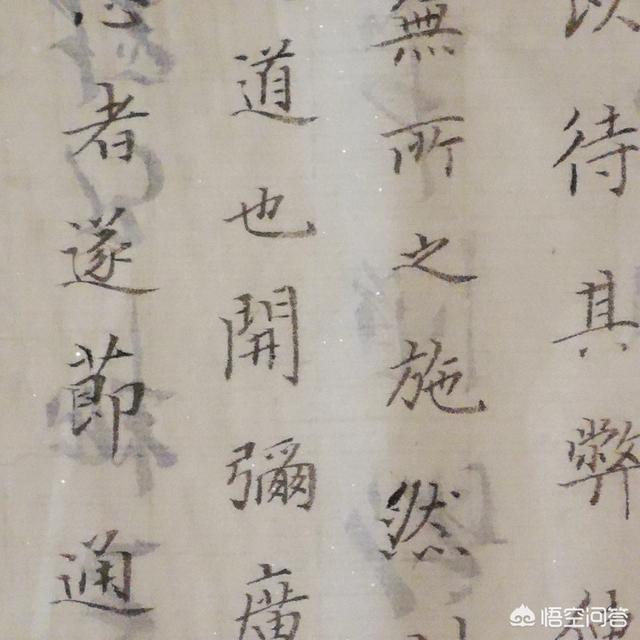 待其弊
無所之施然
道也開彌廣
者遂節通
悟空问答